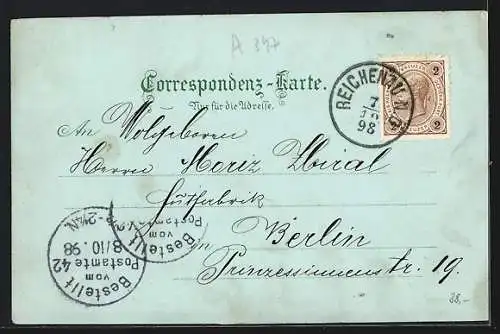 A 397
Correspondenz-Karte.
Nur für die Adresse.
REICHENAU N.Ö.
7/10
98
2
2
An Wolgeboren
Herrn Moriz Zbiral
Hutfabrik
in Berlin
Prinzessinnenstr. 19.
Bestellt
vom
Postamte 42
8/10.98
-2¼N.
Bestellt
vom
Postamte
38,-